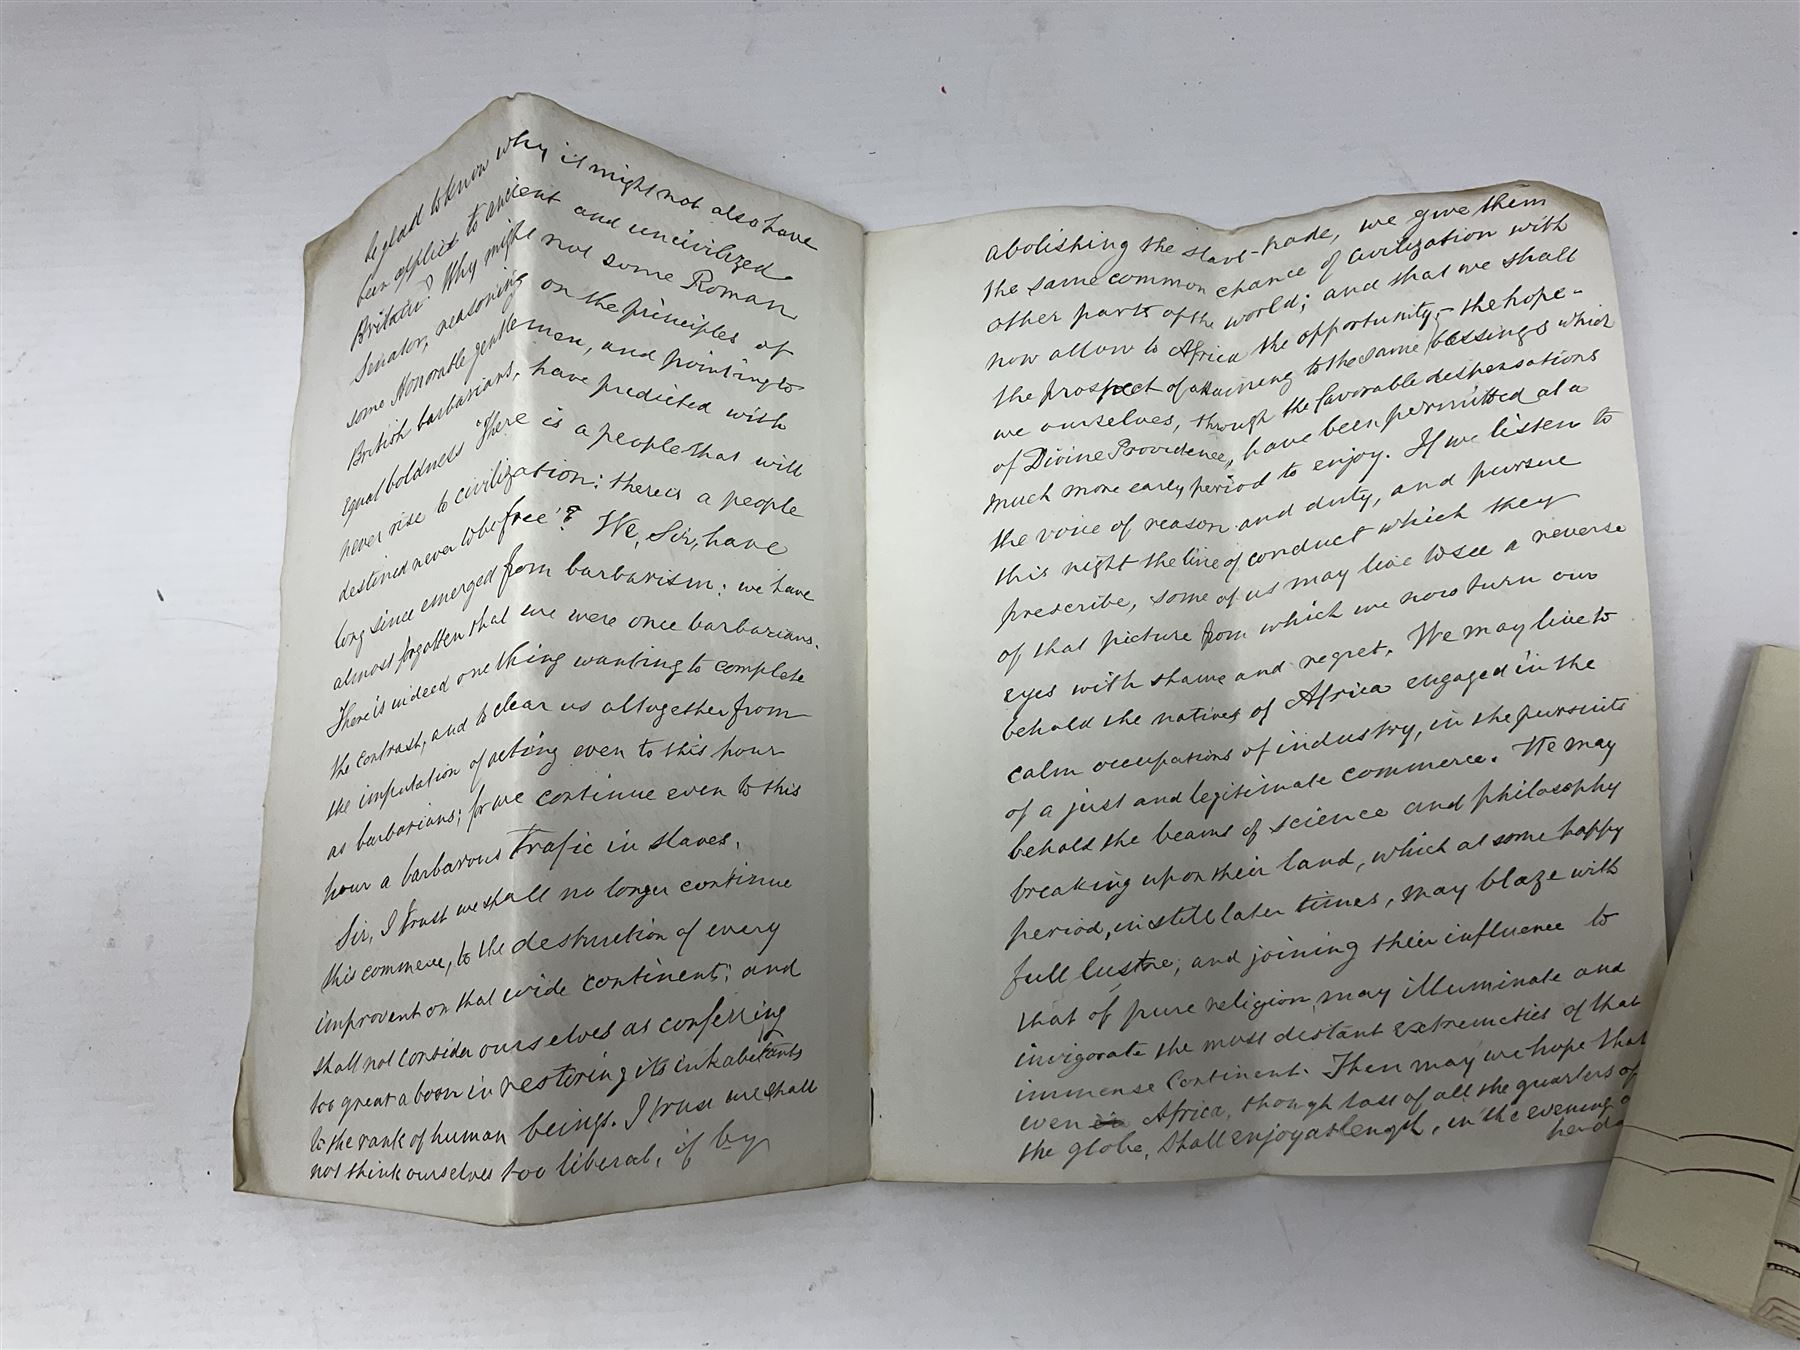 be glad to know why it might not also have
been applied to ancient and uncivilized
Britain? Why might not some Roman
Senator, reasoning on the principles of
some Honorable gentlemen, and pointing to
British barbarians, have predicted with
equal boldness "There is a people that will
never rise to civilization: there is a people
destined never to be free"? We, Sir, have
long since emerged from barbarism: we have
almost forgotten that we were once barbarians.
There is indeed one thing wanting to complete
the contrast, and to clear us altogether from
the imputation of acting even to this hour
as barbarians; for we continue even to this
hour a barbarous trafic in slaves.
Sir, I trust we shall no longer continue
this commerce, to the destruction of every
improvent on that wide continent; and
shall not consider ourselves as conferring
too great a boon in restoring its inhabitants
to the rank of human beings. I trust we shall
not think ourselves too liberal, if by
abolishing the slave-trade, we give them
the same common chance of civilization with
other parts of the world; and that we shall
now allow to Africa the opportunity,- the hope-
the prospect of attaining to the same blessings which
we ourselves, through the favorable dispensations
of Divine Providence, have been permitted at a
much more early period to enjoy. If we listen to
the voice of reason and duty, and pursue
this night the line of conduct which they
prescribe, some of us may live to see a reverse
of that picture from which we now turn our
eyes with shame and regret. We may live to
behold the natives of Africa engaged in the
calm occupations of industry, in the pursuits
of a just and legitimate commerce. We may
behold the beams of science and philosophy
breaking upon their land, which at some happy
period, in still later times, may blaze with
full lustre; and joining their influence to
that of pure religion, may illuminate and
invigorate the most distant extremities of that
immense Continent. Then may we hope that
even Africa, though last of all the quarters of
the globe, shall enjoy at length, in the evening o